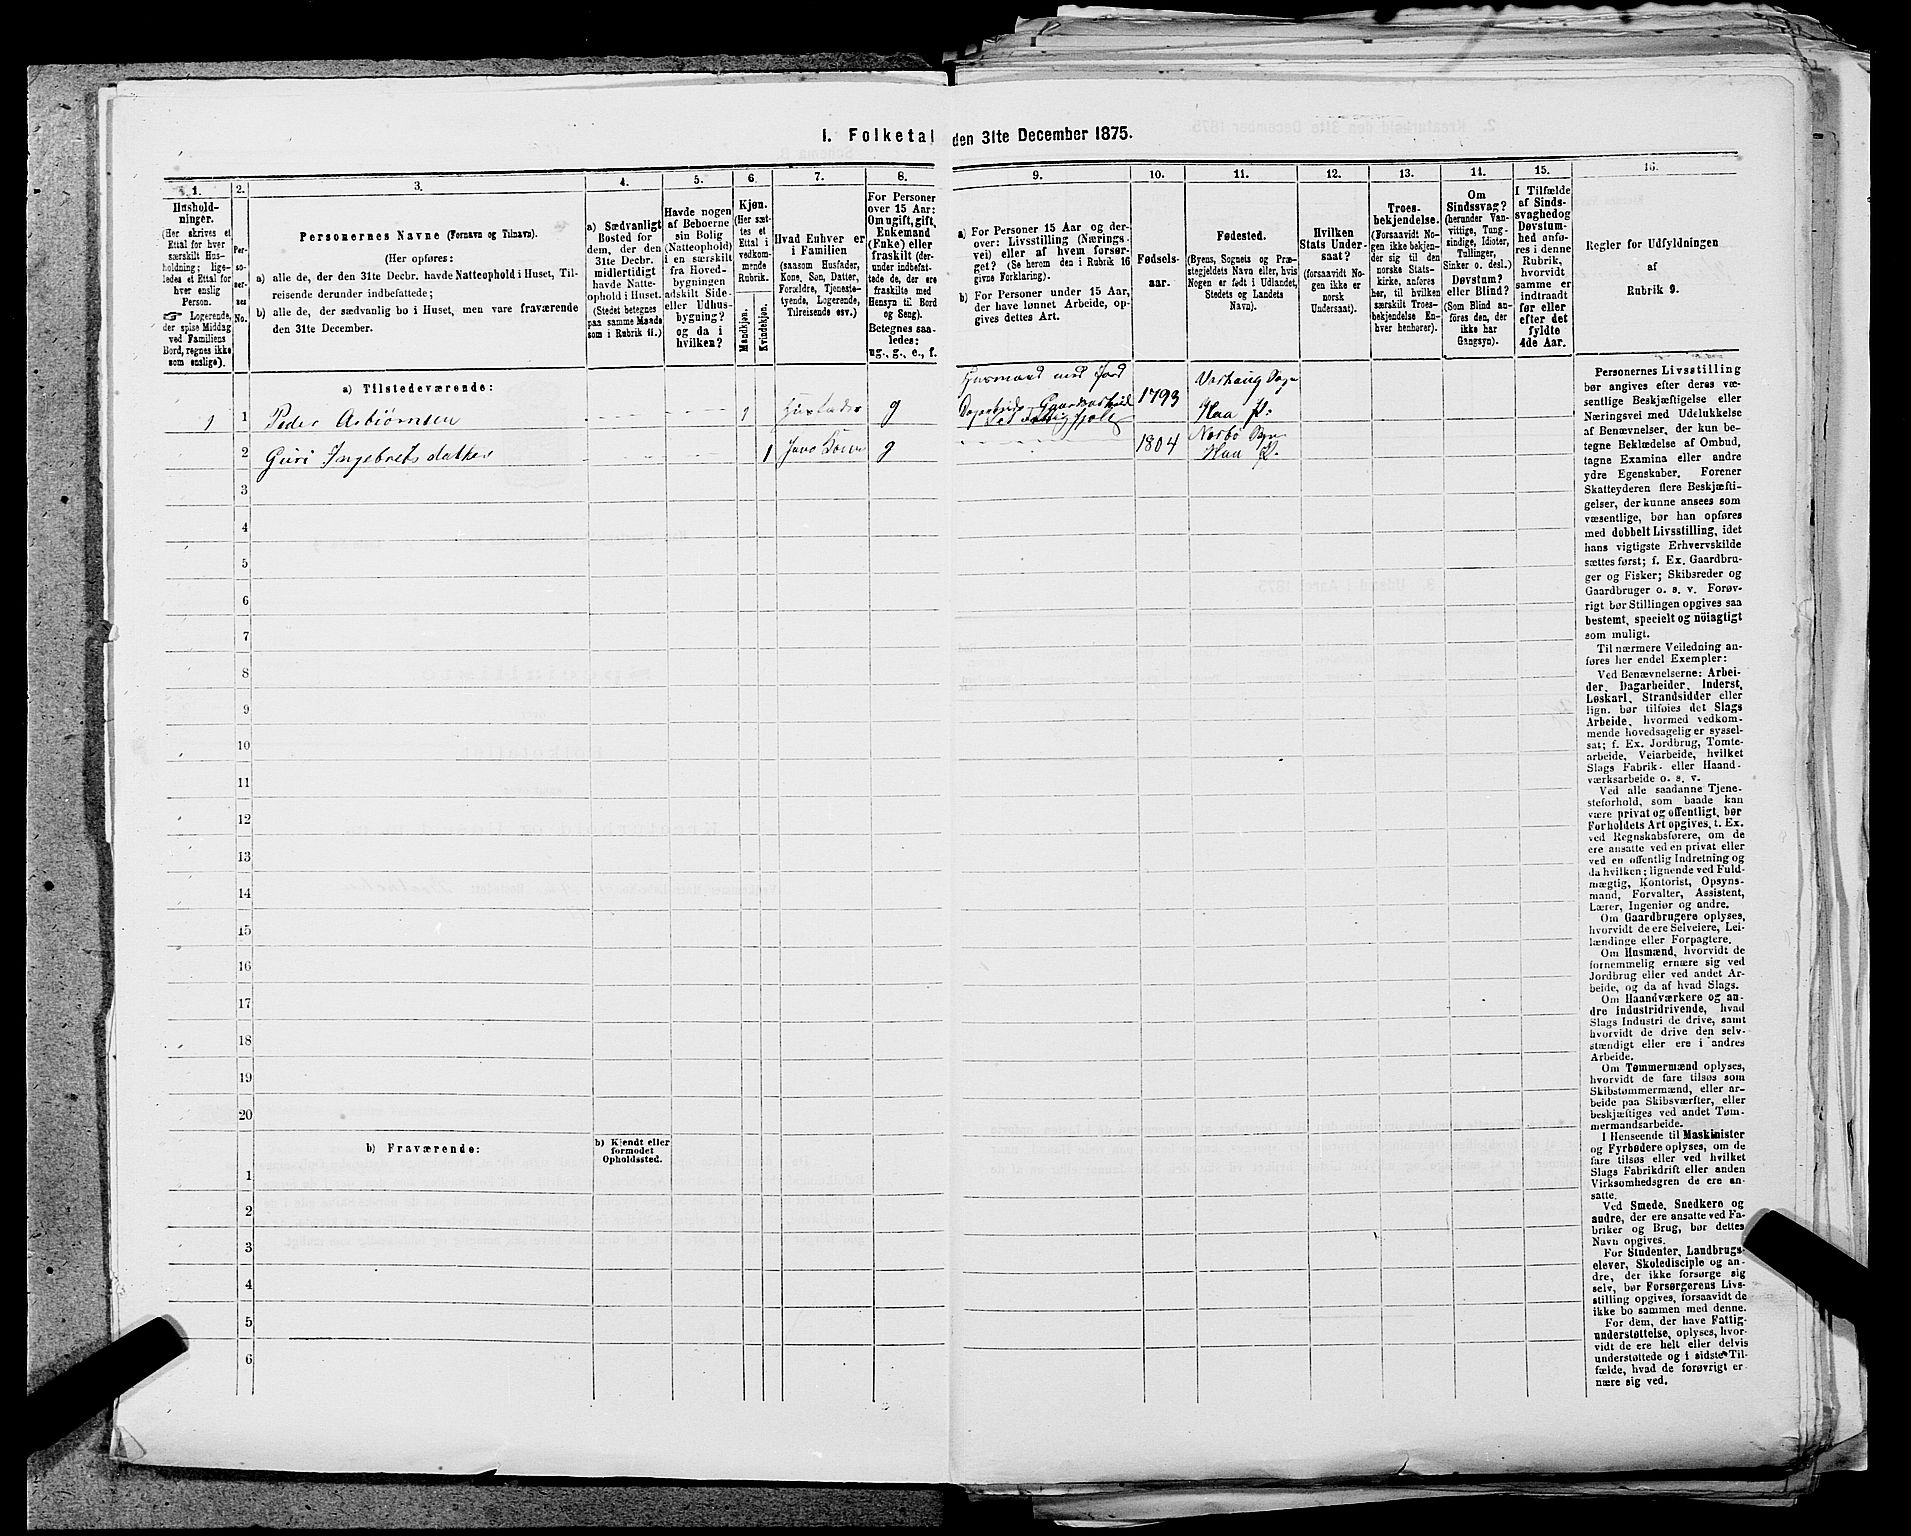 1. Folketal den 31te December 1875.
1.
2.
3.
4.
5.
6.
7.
8.
9.
10.
11.
12.
13.
14.
15.
16.
Hushold-
ninger.
(Her skrives et
Ettal for hver
særskilt Hus-
holdning; lige-
ledes et Ettal for
hver enslig
Person.
☞ Logerende,
der spise Middag
ved Familiens
Bord, regnes ikke
som enslige).
Per-
so-
ner-
nes
No.
Personernes Navne (Fornavn og Tilnavn).
(Her opføres:
a) alle de, der den 31te Decbr. havde Natteophold i Huset, Til-
reisende derunder indbefattede;
b) alle de, der sædvanlig bo i Huset, men vare fraværende
den 31te December.
a) Sædvanligt
Bosted for
dem, der den
31te Decbr.
midlertidigt
havde Natte-
ophold i Huset.
(Stedet betegnes
paa samme Maade
som i Rubrik 11.)
Havde nogen
af Beboerne
sin Bolig
(Natteophold)
i en særskilt
fra Hoved-
bygningen
adskilt Side-
eller Udhus-
bygning?
og da i
hvilken?
Kjøn.
(Her sæt-
tes et
Ettal i
vedkom-
mende
Rubrik.
Mandkjøn.
Kvindekjøn.
Hvad Enhver er
i Familien
(saasom Husfader,
Kone, Søn, Datter,
Forældre, Tjeneste-
tyende, Logerende,
Tilreisende osv.)
For Personer
over 15 Aar:
Om ugift, gift,
Enkemand
(Enke) eller
fraskilt (der-
under indbefat-
tede de, der ere
fraskilte med
Hensyn til Bord
og Seng).
Betegnes saa-
ledes:
ug., g., e., f.
a) For Personer 15 Aar og der-
over: Livsstilling (Nærings-
vei) eller af hvem forsør-
get? (Se herom den i Rubrik 16
givne Forklaring).
b) For Personer under 15 Aar,
der have lønnet Arbeide, op-
gives dettes Art.
Fødsels-
aar.
Fødested.
(Byens, Sognets og Præ-
stegjeldets Navn eller, hvis
Nogen er født i Udlandet,
Stedets og Landets
Navn).
Hvilken
Stats Under-
saat?
(forsaavidt No-
gen ikke er
norsk
Undersaat).
Troes-
bekjendelse.
(Forsaavidt No-
gen ikke bekjen-
der sig til den
norske Stats-
kirke, anføres
her, til hvilken
særskilt Troes-
bekjendelse En-
hver henhører).
Om
Sindssvag?
(herunder Van-
vittige, Tung-
sindige, Idioter,
Tullinger,
Sinker o. desl.)
Døvstum?
eller Blind?
(Som Blind an-
føres den, der
ikke har
Gangsyn).
I Tilfælde
af Sinds-
svaghed og
Døvstum-
hed anfø-
res i denne
Rubrik,
hvorvidt
samme er
indtraadt
før eller
efter det
fyldte
4de Aar.
Regler for Udfyldningen
af
Rubrik 9.
a) Tilstedeværende:
Husmand med Jord
1 1 Peder Asbiørnsen 1 Husfader g Dagarbeide 1793 Varhaug Sogn
Haa P.
2 Guri Ingebretsdatter 1 hans Kone g 1804 Nærbø Sogn
Haa P.
3
4
5
6
7
8
9
10
11
12
13
14
15
16
17
18
19
20
b) Fraværende:
b) Kjendt eller
formodet
Opholdssted.
1
2
3
4
5
6
Personernes Livsstilling
bør angives efter deres væ-
sentlige Beskjæftigelse eller
Næringsvei med Udelukkelse
af Benævnelser, der kun be-
tegne Beklædelse af Ombud,
tagne Examina eller andre
ydre Egenskaber. Forener
Skatteyderen flere Beskjæfti-
gelser, der kunne ansees som
væsentlige, bør han opføres
med dobbelt Livsstilling, idet
hans vigtigste Erhvervskilde
sættes først; f. Ex. Gaardbru-
ger og Fisker; Skibsreder og
Gaardbruger o. s. v. Forøv-
rigt bør Stillingen opgives saa
bestemt, specielt og nöiagtigt
som muligt.
Til nærmere Veiledning an-
føres her endel Exempler:
Ved Benævnelserne: Arbei-
der, Dagarbeider, Inderst,
Løskarl, Strandsidder eller
lign. bør tilføies det Slags
Arbeide, hvormed vedkom-
mende hovedsagelig er syssel-
sat; f. Ex. Jordbrug, Tomte-
arbeide, Veiarbeide, hvilket
Slags Fabrik- eller Haand-
værksarbeide o. s. v.
Ved alle saadanne Tjene-
steforhold, som baade kan
være privat og offentligt, bør
Forholdets Art opgives, t. Ex.
ved Regnskabsførere, om de
ere ansatte ved en privat eller
ved en offentlig Indretning og
da hvilken; lignende ved Fuld-
mægtig, Kontorist, Opsyns-
mand, Forvalter, Assistent,
Lærer, Ingeniør og andre.
Om Gaardbrugere oplyses,
hvorvidt de ere Selveiere, Lei-
lændinge eller Forpagtere.
Om Husmænd, hvorvidt de
fornemmelig ernære sig ved
Jordbrug eller ved andet Ar-
beide, og da af hvad Slags.
Om Haandværkere og an-
dre Industridrivende, hvad
Slags Industri de drive, samt
hvorvidt de drive den selv-
stændigt eller ere i andres
Arbeide.
Om Tømmermænd oplyses,
hvorvidt de fare tilsøs som
Skibstømmermænd, eller ar-
beide paa Skibsværfter, eller
beskjæftiges ved andet Tøm-
mermandsarbeide.
I Henseende til Maskinister
og Fyrbødere oplyses, om de
fare tilsøs eller ved hvilket
Slags Fabrikdrift eller anden
Virksomhedsgren de ere an-
satte.
Ved Smede, Snedkere og
andre, der ere ansatte ved Fa-
briker og Brug, bør dettes
Navn opgives.
For Studenter, Landbrugs-
elever, Skoledisciple og an-
dre, der ikke forsørge sig
selv, bør Forsørgerens Livs-
stilling opgives, forsaavidt de
ikke bo sammen med denne.
For dem, der have Fattig-
understøttelse, oplyses, hvor-
vidt de ere helt eller delvis
understøttede og i sidste Til-
fælde, hvad de forøvrigt er-
nære sig ved.